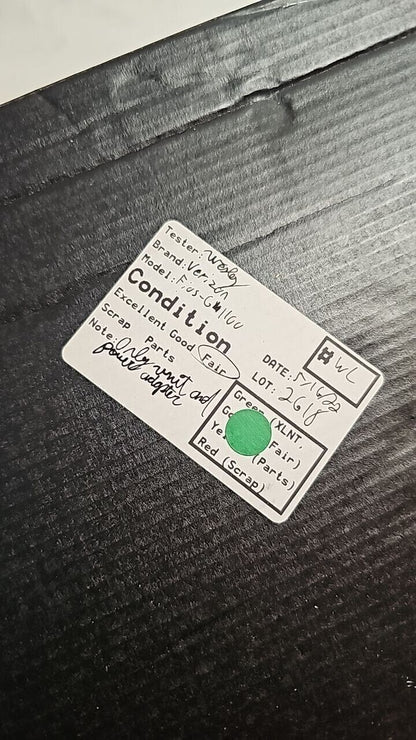 Tester: Wesley
Brand: Verizon
Model: FiOS-G1100
Condition
Excellent Good Fair
Scrap Parts
Note: Only unit and
power adapter
# WL
DATE: 5/16/22
LOT: 2618
Green (XLNT,
Fair)
(Parts)
Red (Scrap)